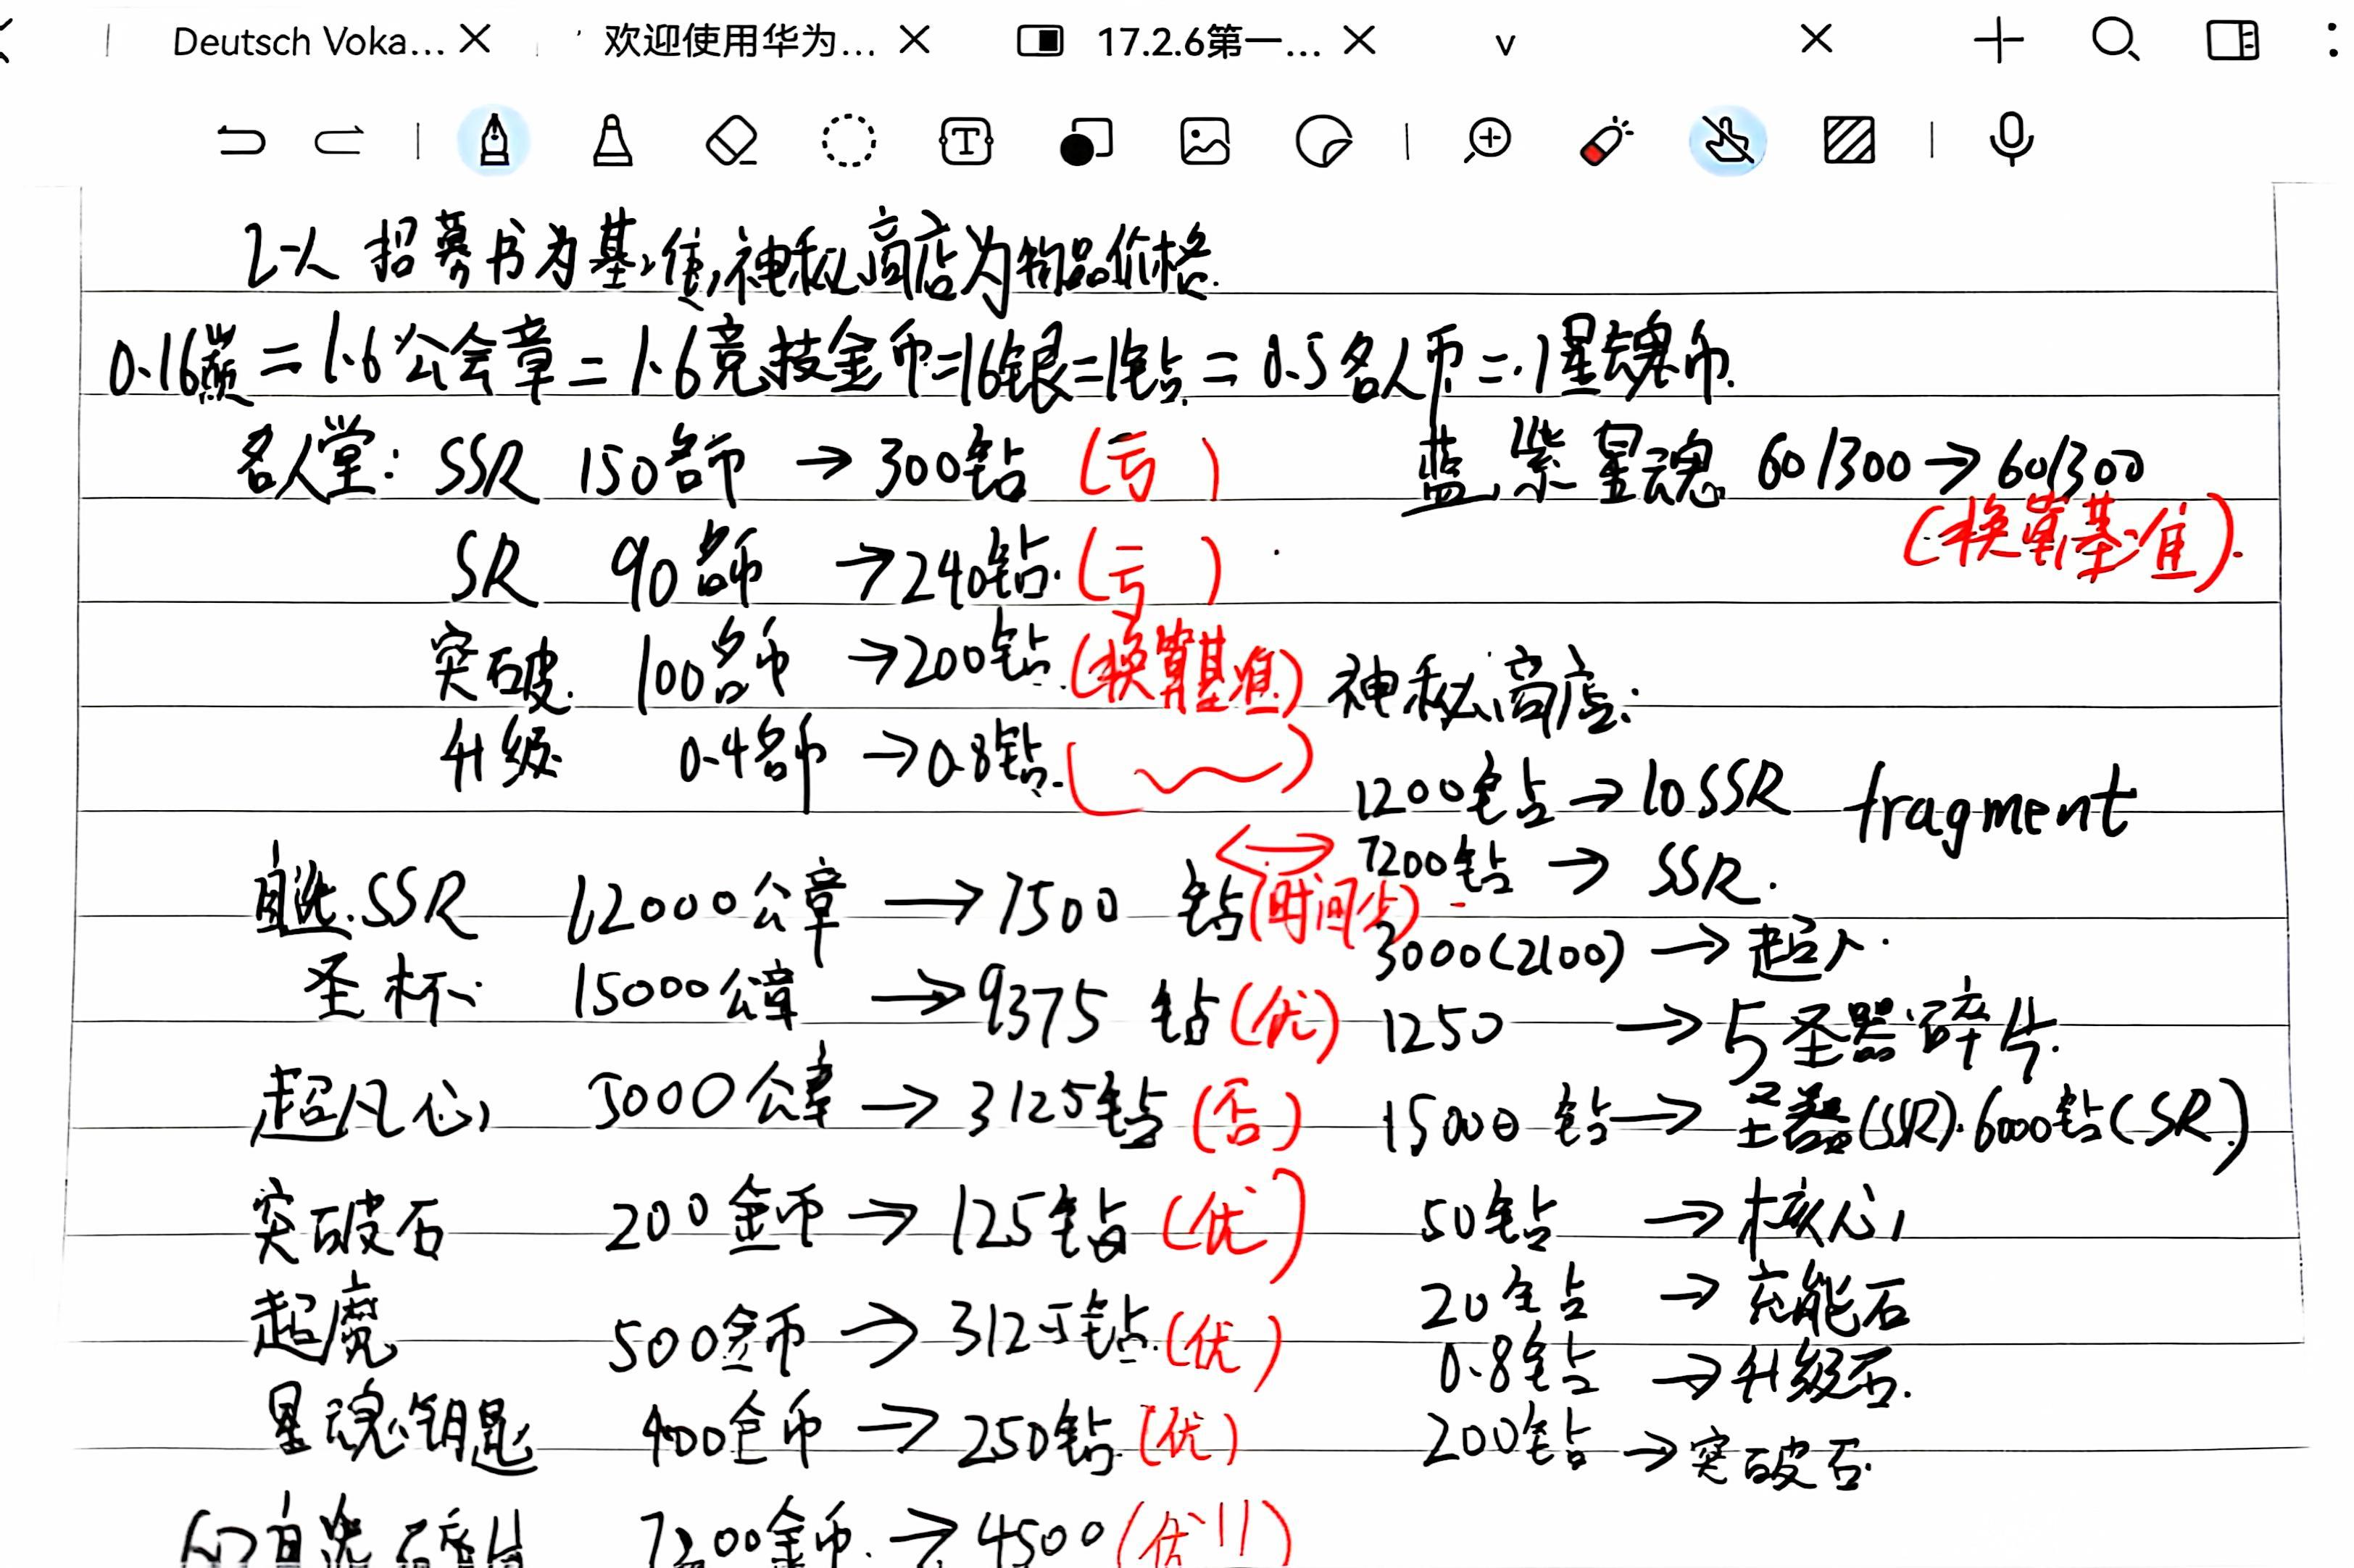 Deutsch Voka...
欢迎使用华为...
17.2.6第一...
以 招募书为基准,神秘商店为物品价格.
0.16 = 1.6公会章 = 1.6竞技金币=16银=1钻 = 0.5名人币 = 1星魂币.
名人堂: SSR 150名币 → 300钻 (亏)
蓝,紫星魂 60/300 → 60/300
(换算基准).
SR 90名币 → 240钻. (亏)
突破. 100名币 → 200钻. (换算基准)
升级 0.4名币 → 0.8钻.
自选.SSR 12000公章 → 7500 钻 (时间少)
圣杯: 15000公章 → 9375 钻 (优)
超凡心 5000公章 → 3125钻 (否)
突破石 200金币 → 125钻 (优)
超魔 500金币 → 312.5钻. (优)
星魂钥匙 400金币 → 250钻. (优)
自选碎片 7200金币. → 4500 (优!!)
神秘商店:
1200钻 → 10SSR fragment
7200钻 → SSR.
3000(2100) → 超凡.
1250 → 5圣器碎片.
15000 钻 → 圣器(SSR). 6000钻(SR.)
50钻 → 核心
20钻 → 充能石
0.8钻 → 升级石.
200钻 → 突破石.